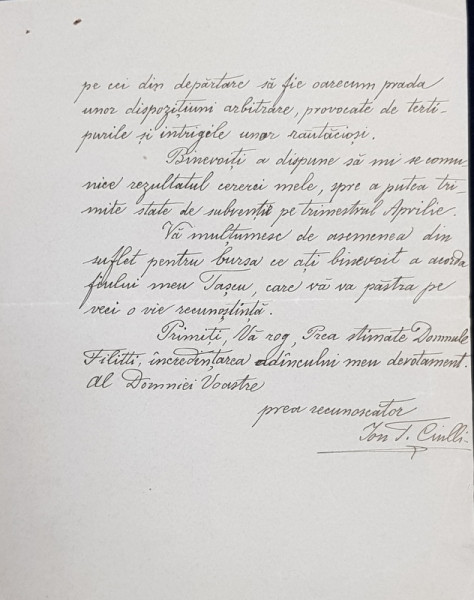 pe cei din depărtare să fie oarecum prada
unor dispozițiuni arbitrare, provocate de terti-
purile și intrigele unor răutăcioși.
Binevoiți a dispune să mi se comu
nice rezultatul cererei mele, spre a putea tri-
mite state de subvenții pe trimestrul Aprilie.
Vă mulțumesc de asemenea din
suflet pentru bursa ce ați binevoit a acorda
fiului meu Tașcu, care vă va păstra pe
veci o vie recunoștință.
Primiți, Vă rog, Prea stimate Domnule
Filitti, încredințarea adîncului meu devotament.
al Domniei Voastre
prea recunoscător
Ion T. Ciulli